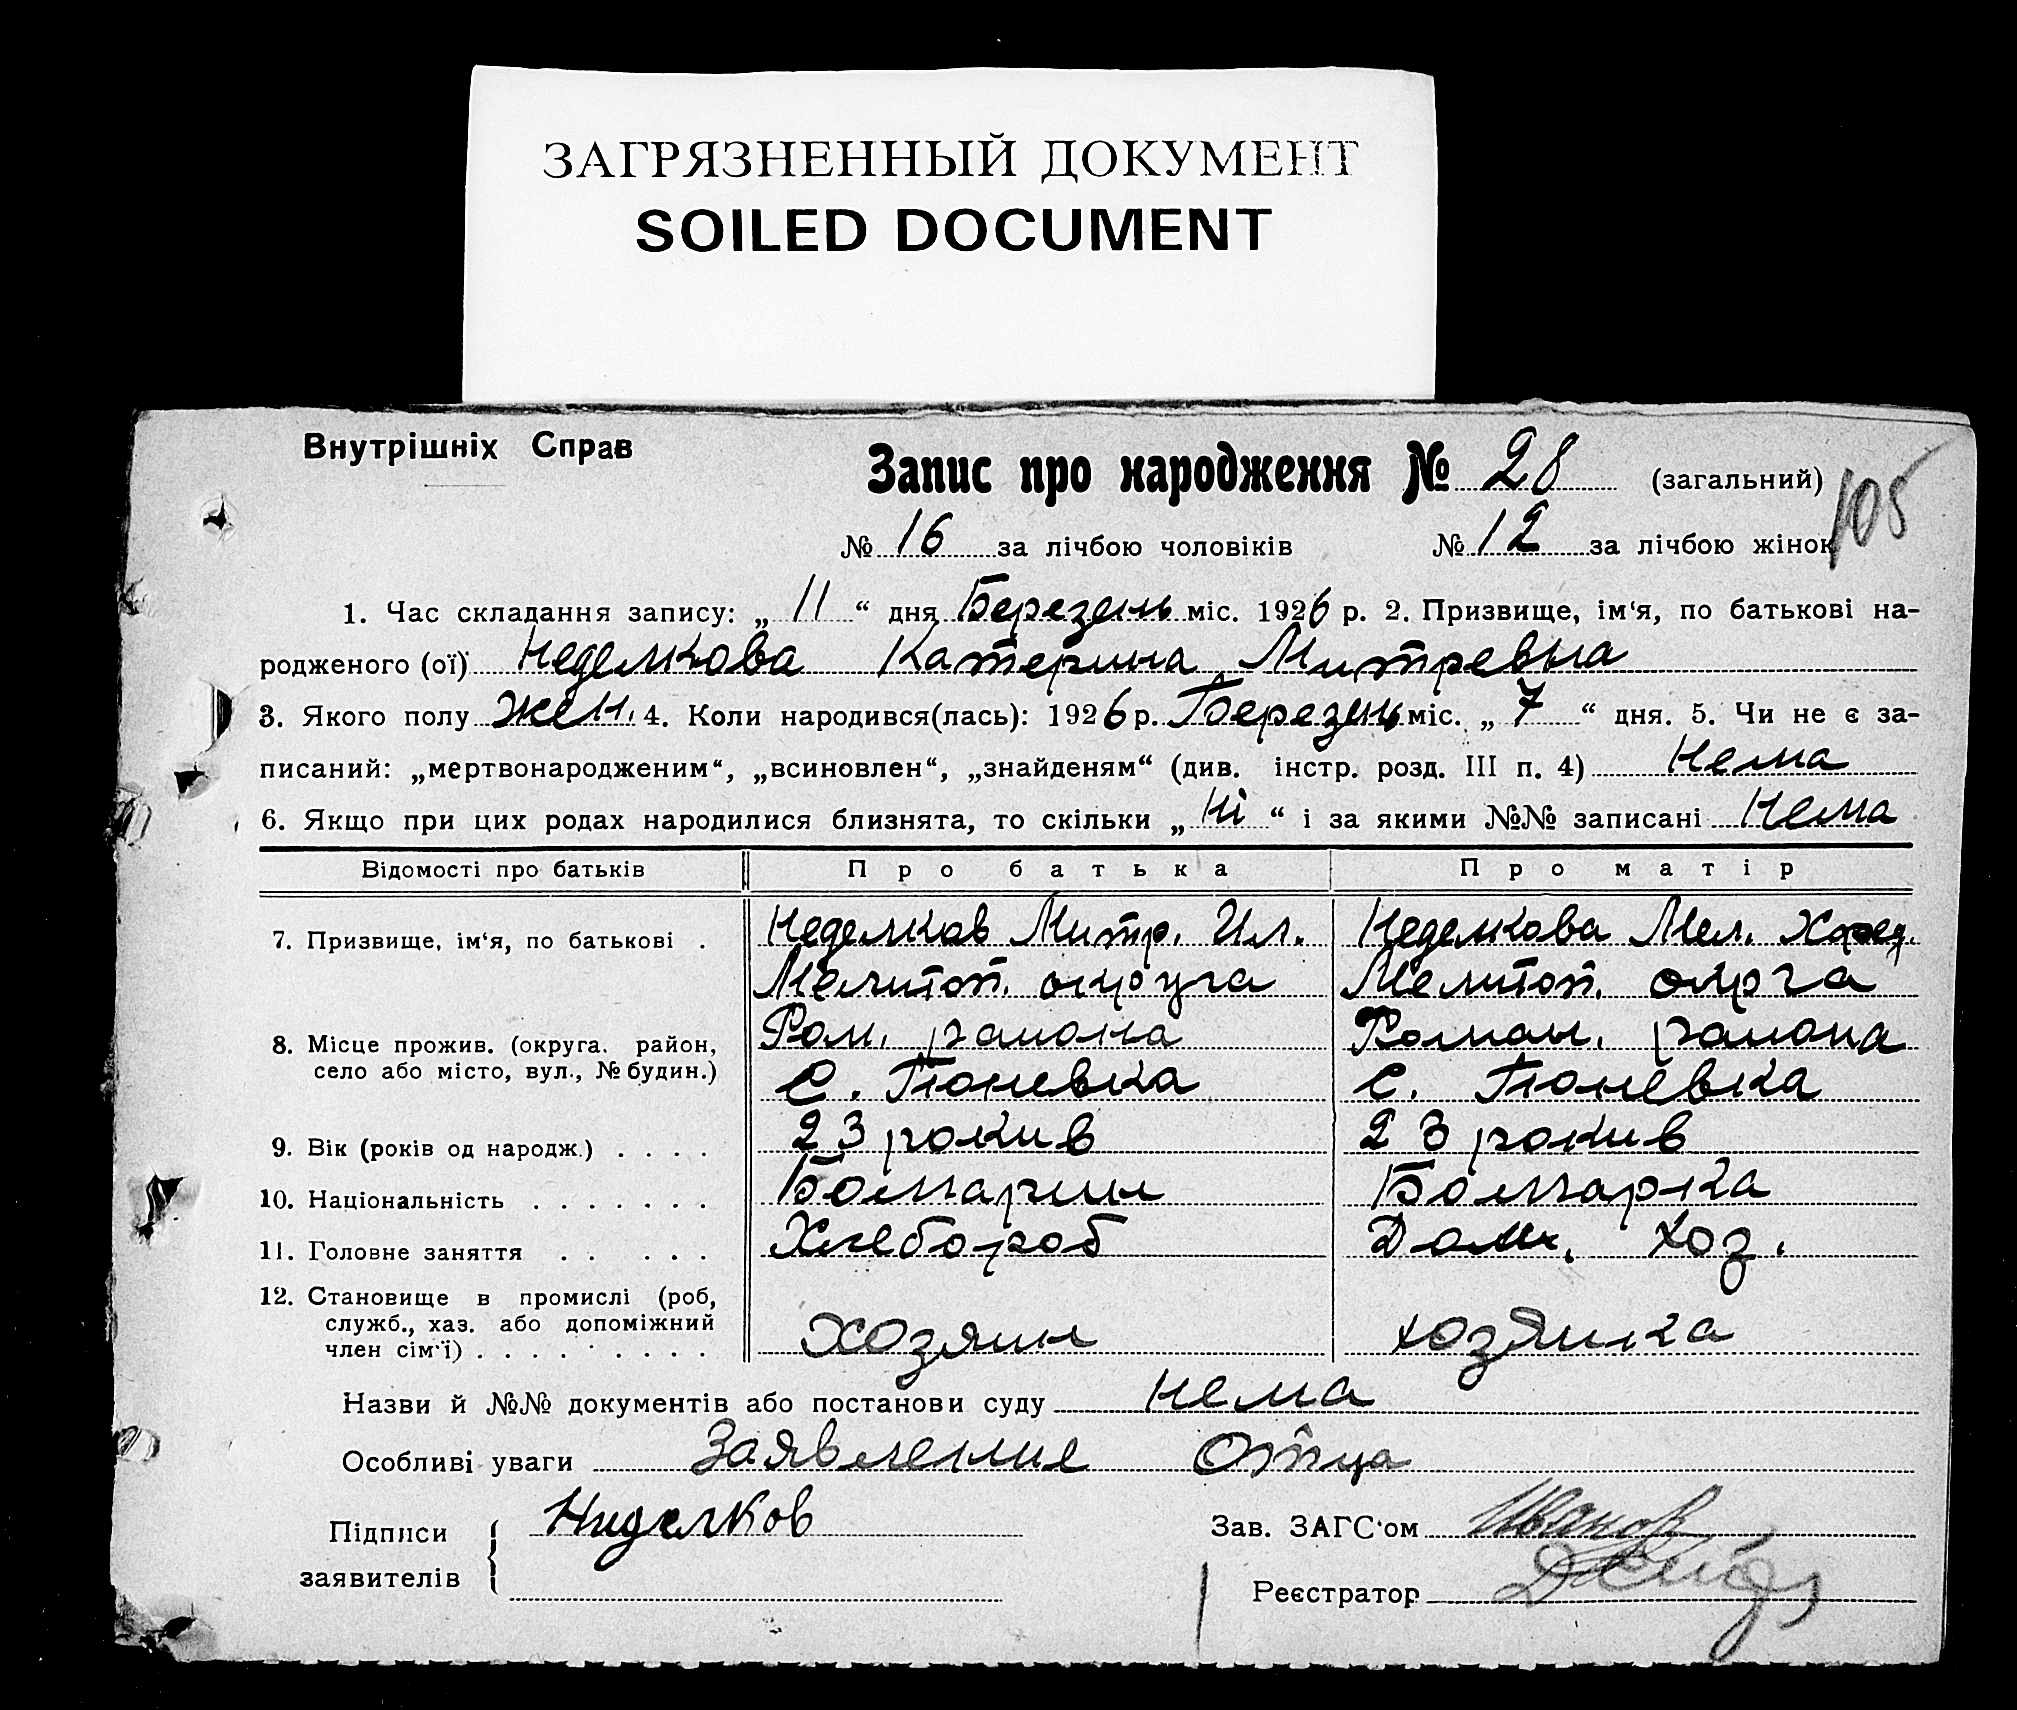 ЗАГРЯЗНЕННЫЙ ДОКУМЕНТ
SOILED DOCUMENT
Внутрішніх Справ
Запис про народження № 28 (загальний)
105
№ 16 за лічбою чоловіків № 12 за лічбою жінок
1. Час складання запису: „ 11 “ дня Березень міс. 1926 р. 2. Призвище, ім‘я, по батькові на-
родженого (ої) Неделкова Катерина Митревна
3. Якого полу жен. 4. Коли народився(лась): 1926 р. Березень міс. „ 7 “ дня. 5. Чи не є за-
писаний: „мертвонародженим“, „всиновлен“, „знайденям“ (див. інстр. розд. III п. 4) нема
6. Якщо при цих родах народилися близнята, то скільки „ ні “ і за якими №№ записані нема
Відомості про батьків Про батька Про матір
7. Призвище, ім‘я, по батькові . Неделков Митр. Ил. Неделкова Мел.
Мелитоп. округа Мелитоп. окрга
8. Місце прожив. (округа, район, Ром. раиона Роман. раиона
село або місто, вул., № будин.) С. Гюневка С. Гюневка
9. Вік (років од народж.) . . . . 23 рокив 23 рокив
10. Національність . . . . . . . Болгарин Болгарка
11. Головне заняття . . . . . Хлебороб Дом. хоз.
12. Становище в промислі (роб,
служб., хаз. або допоміжний хозяин хозяика
член сім‘ї) . . . . . . . . .
Назви й №№ документів або постанови суду нема
Особливі уваги Заявление Отца
Підписи Ниделков Зав. ЗАГС‘ом Иванов
заявителів Реєстратор